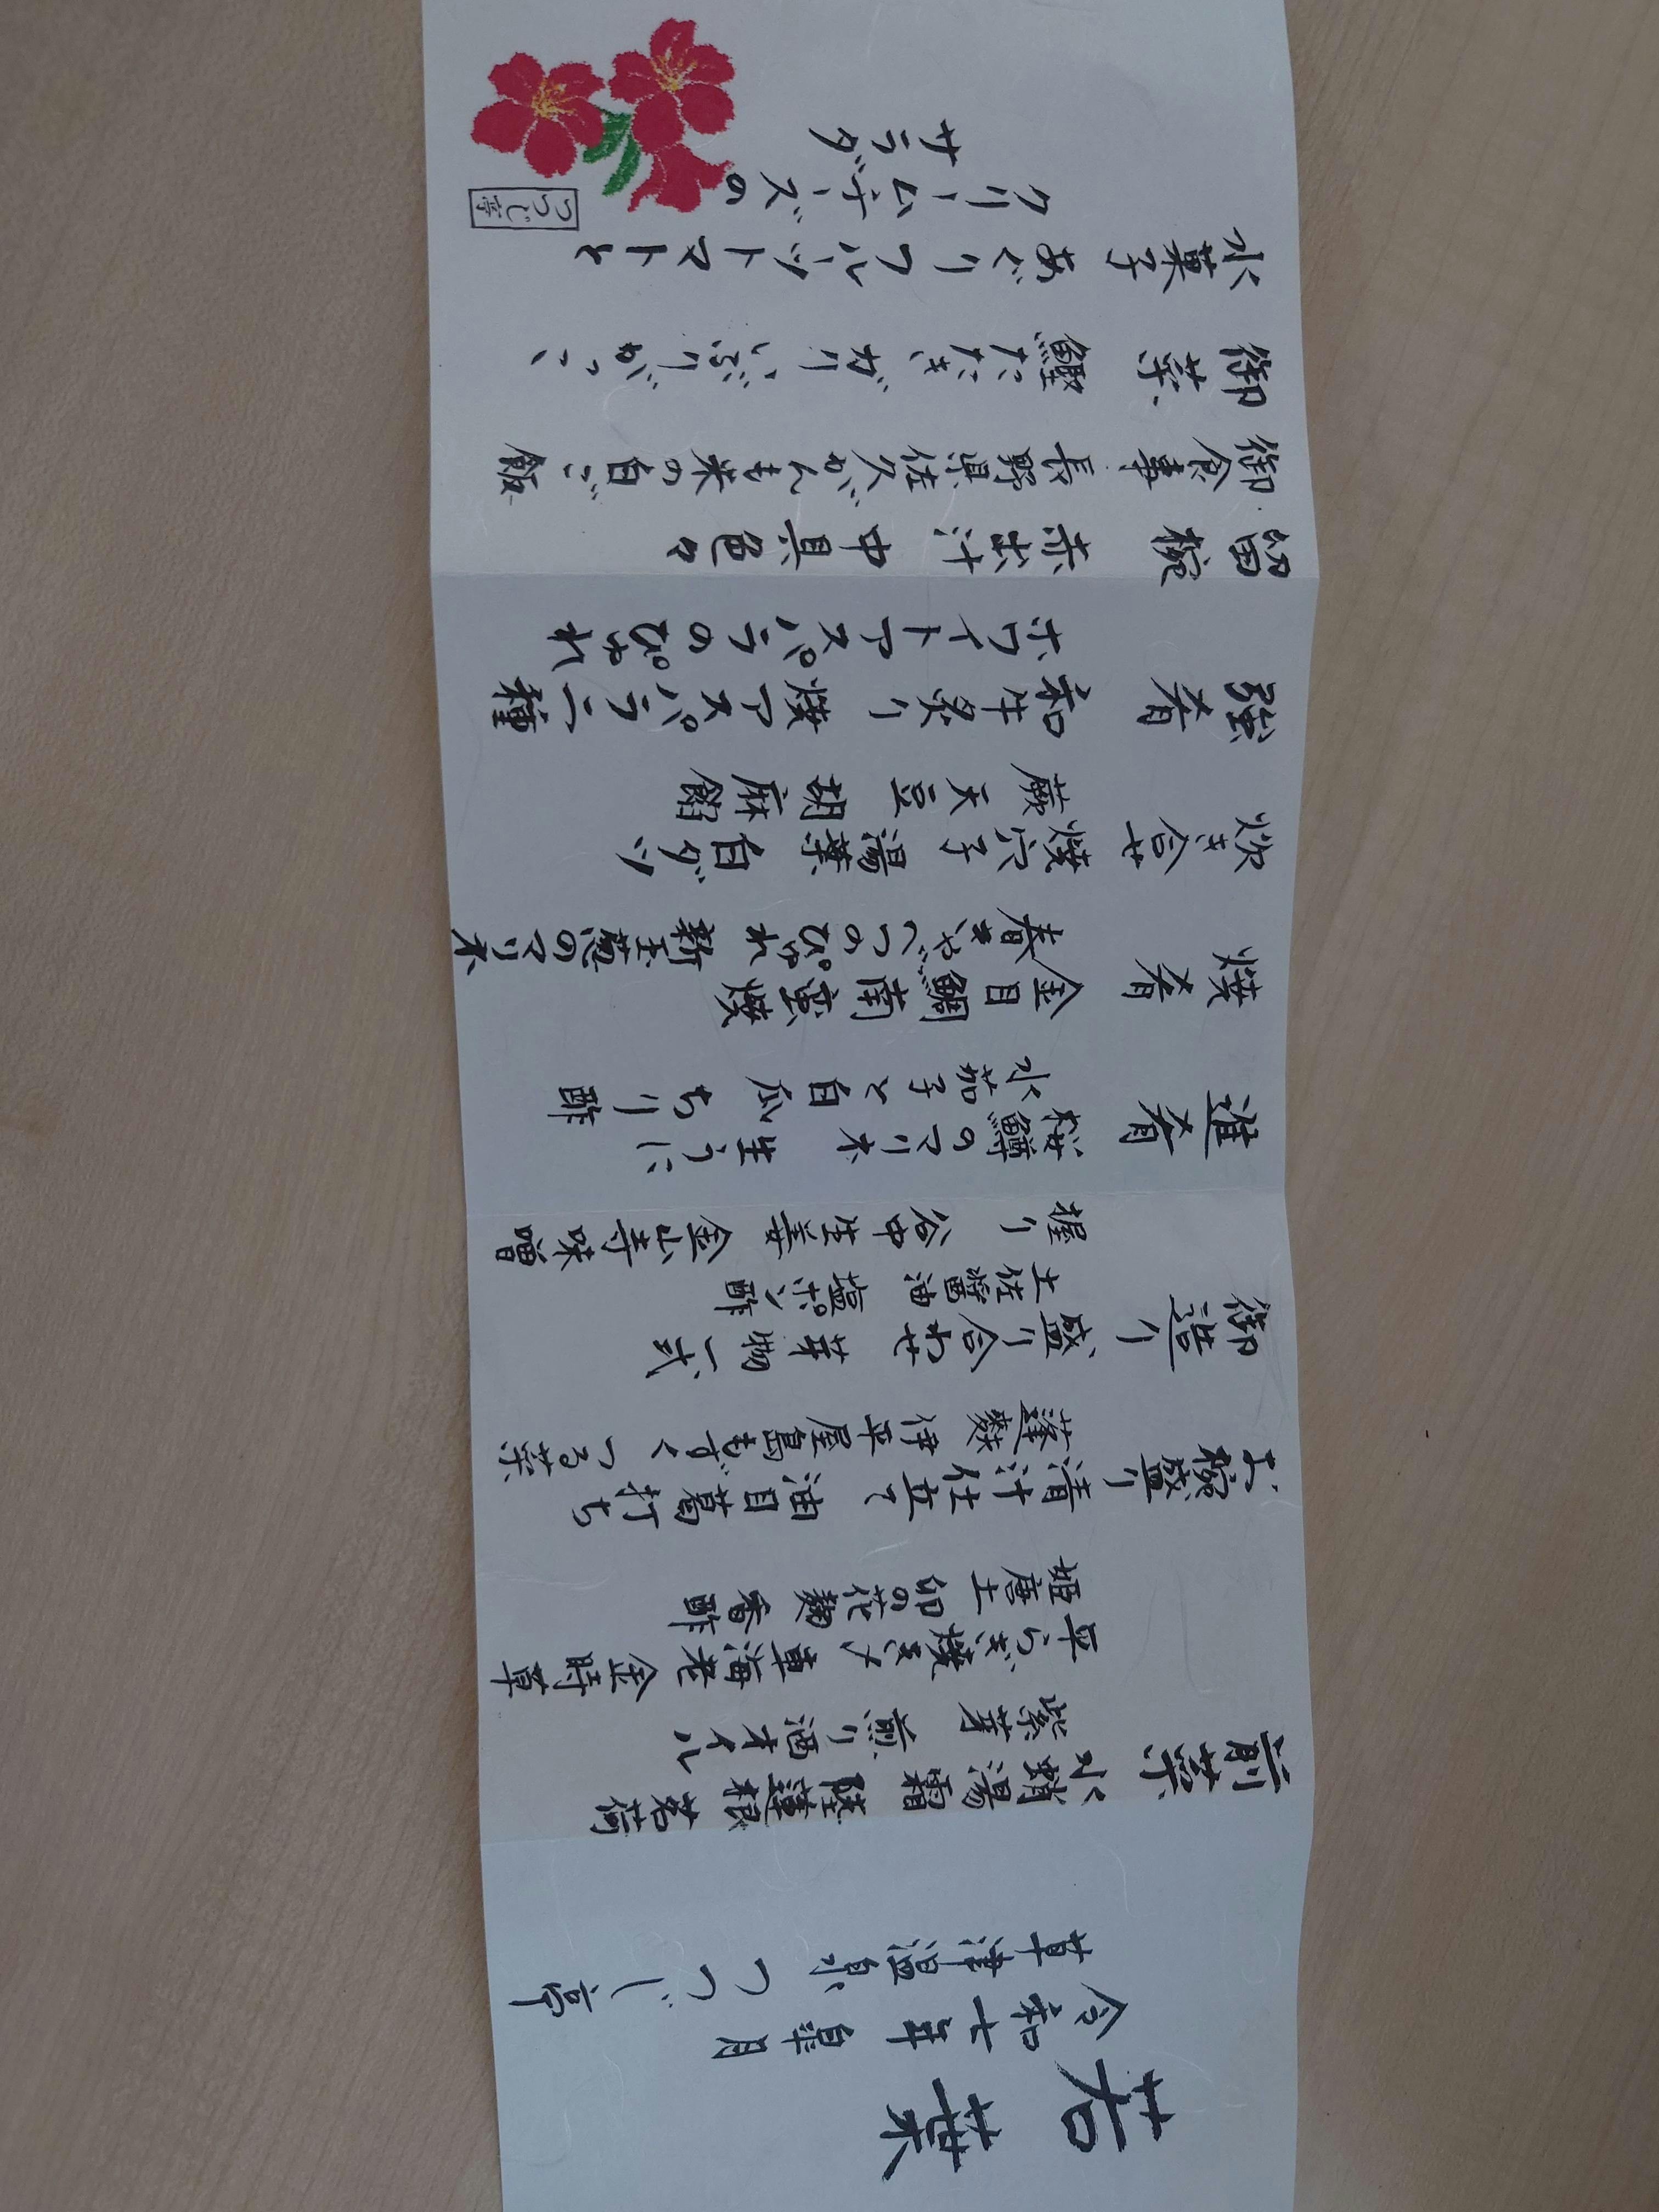 若葉
令和七年皐月
草津温泉 つつじ亭
前菜 水蛸湯霜 陸蓮根 茗荷
紫芽 煎り酒オイル
平らぎ焼き〆 車海老 金時草
姫唐土 卯の花 麹香酢
お椀盛り 清汁仕立て 油目葛打ち
蓬麩 伊平屋島もずく つる菜
御造り 盛り合わせ 芽物一式
土佐醤油 塩ポン酢
握り 谷中生姜 金山寺味噌
進肴 桜鱒のマリネ 生うに
水茄子と白瓜 ちり酢
焼肴 金目鯛南蛮焼
春きゃべつのぴゅれ 新玉葱のマリネ
炊き合せ 焼穴子 湯葉 白ダツ
蕨 天豆 胡麻餡
強肴 和牛炙り 焼アスパラ二種
ホワイトアスパラのぴゅれ
留椀 赤出汁 中具色々
御食事 長野県佐久がんも米の白ご飯
御菜 鰹たたき ガリ いぶりがっこ
水菓子 あぐりフルーツトマトと
クリームチーズの
サラダ
つつじ亭